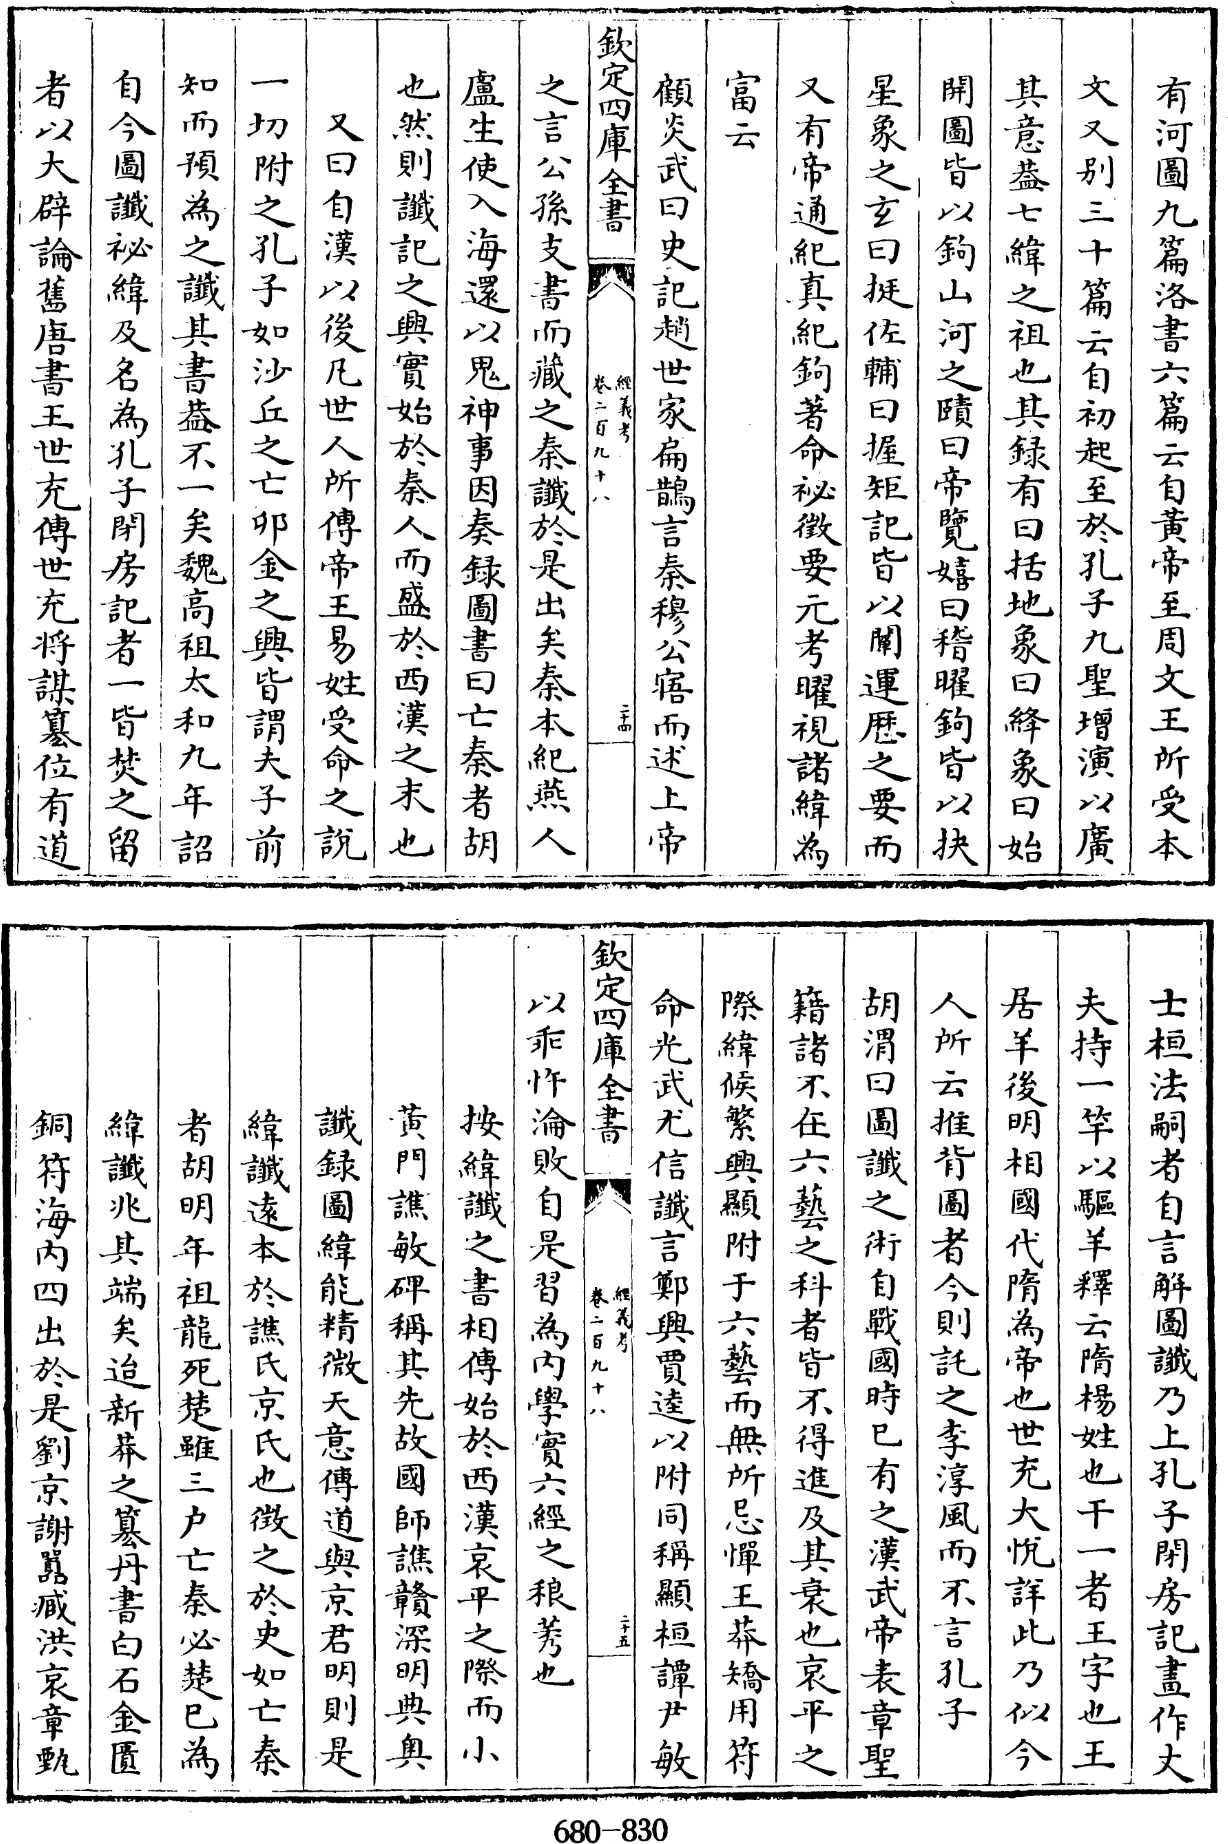 有河圖九篇洛書六篇云自黃帝至周文王所受本
文又别三十篇云自初起至於孔子九聖增演以廣
其意葢七緯之祖也其録有曰括地象曰絳象曰始
開圖皆以鉤山河之賾曰帝覽嬉曰稽曜鉤皆以抉
星象之玄曰挺佐輔曰握矩記皆以闡運歴之要而
又有帝通紀真紀鉤著命祕徵要元考曜視諸緯為
富云
顧炎武曰史記趙世家扁鵲言秦穆公寤而述上帝
欽定四庫全書
經義考
卷二百九十八
二十四
之言公孫支書而藏之秦讖於是出矣秦本紀燕人
盧生使入海還以鬼神事因奏録圖書曰亡秦者胡
也然則讖記之興實始於秦人而盛於西漢之末也
又曰自漢以後凡世人所傳帝王易姓受命之説
一切附之孔子如沙丘之亡卯金之興皆謂夫子前
知而預為之讖其書葢不一矣魏高祖太和九年詔
自今圖讖祕緯及名為孔子閉房記者一皆焚之留
者以大辟論舊唐書王世充傳世充将謀簒位有道
士桓法嗣者自言解圖讖乃上孔子閉房記畫作丈
夫持一竿以驅羊釋云隋楊姓也干一者王字也王
居羊後明相國代隋為帝也世充大悦詳此乃似今
人所云推背圖者今則託之李淳風而不言孔子
胡渭曰圖讖之術自戰國時已有之漢武帝表章聖
籍諸不在六藝之科者皆不得進及其衰也哀平之
際緯候繁興顯附于六藝而無所忌憚王莽矯用符
命光武尤信讖言鄭興賈逵以附同稱顯桓譚尹敏
欽定四庫全書
經義考
卷二百九十八
二十五
以乖忤淪敗自是習為内學實六經之稂莠也
按緯讖之書相傳始於西漢哀平之際而小
黄門譙敏碑稱其先故國師譙贛深明典奥
讖録圖緯能精微天意傳道與京君明則是
緯讖遠本於譙氏京氏也徴之於史如亡秦
者胡明年祖龍死楚雖三户亡秦必楚已為
緯讖兆其端矣迨新莽之簒丹書白石金匱
銅符海内四出於是劉京謝囂臧洪哀章甄
680-830